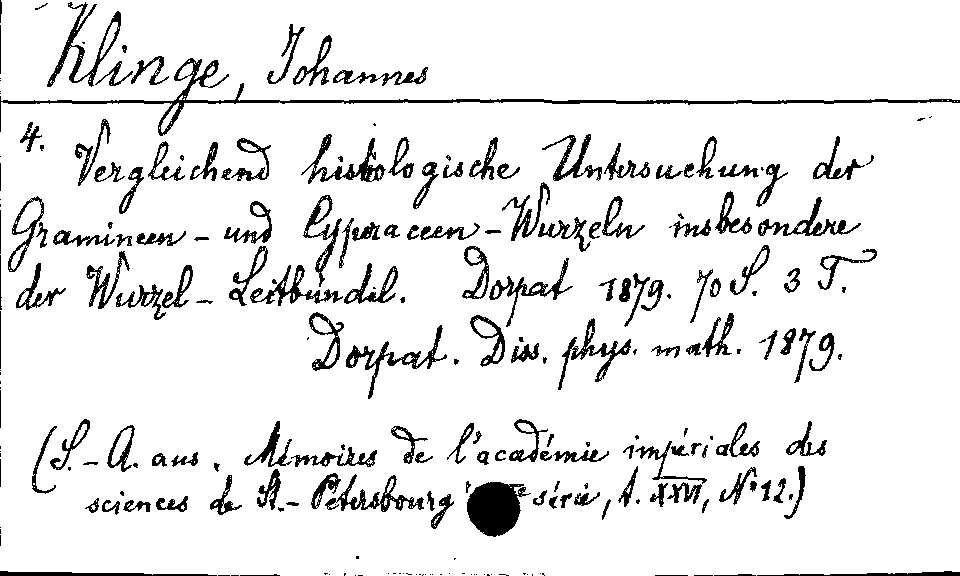 Klinge, Johannes
4. Vergleichend histiologische Untersuchung der
Gramineen- und Cyperaceen-Wurzeln insbesondere
der Wurzel-Leitbündel. Dorpat 1879. 70 S. 3 T.
Dorpat. Diss. phys. math. 1879.
(S.-A. aus. Mémoires de l'académie impériales des
sciences de St.-Pétersbourg série, t. XXVI, No 12.)